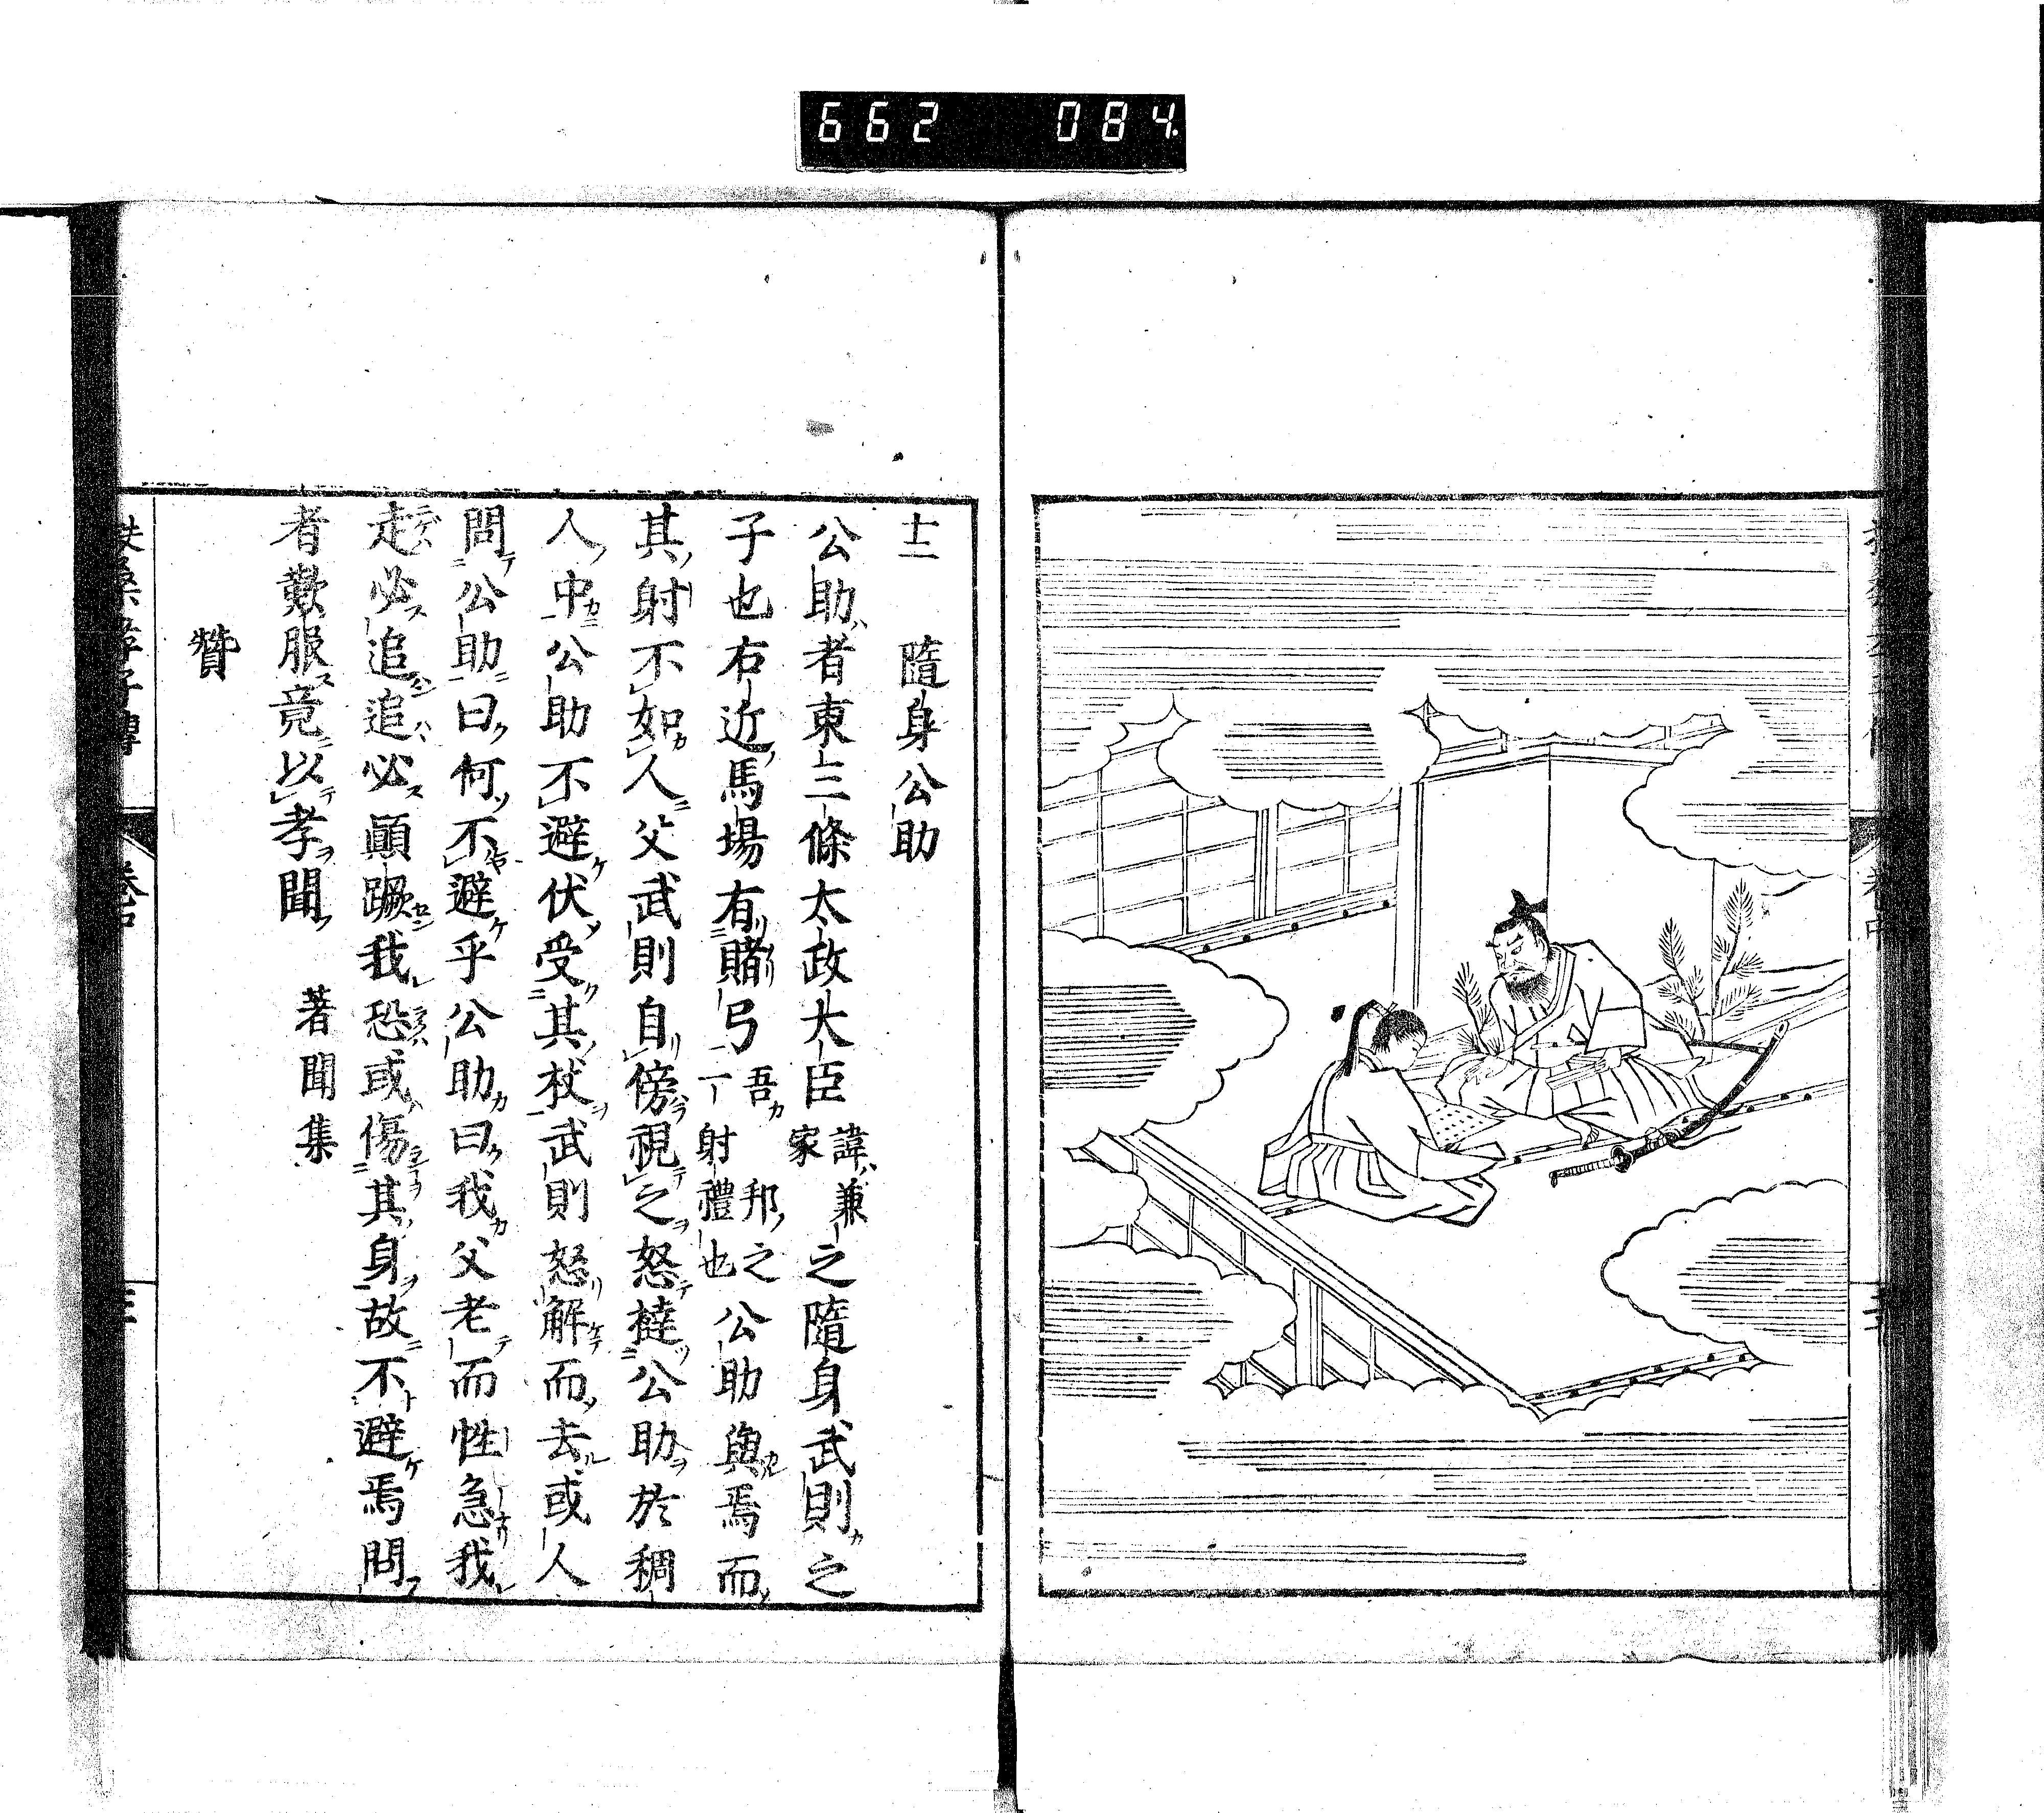 662 084
十二 隨身公助
公助者東三條太政大臣諱兼家之隨身武則之
子也右近馬場有賭弓吾邦之一射禮也公助與焉而
其射不如人父武則自傍視之怒撻公助於稠
人中公助不避伏受其杖武則怒解而去或人
問公助曰何不避乎公助曰我父老而性急我
走必追追必顛蹶我恐或傷其身故不避焉問
者歎服竟以孝聞 著聞集
贊